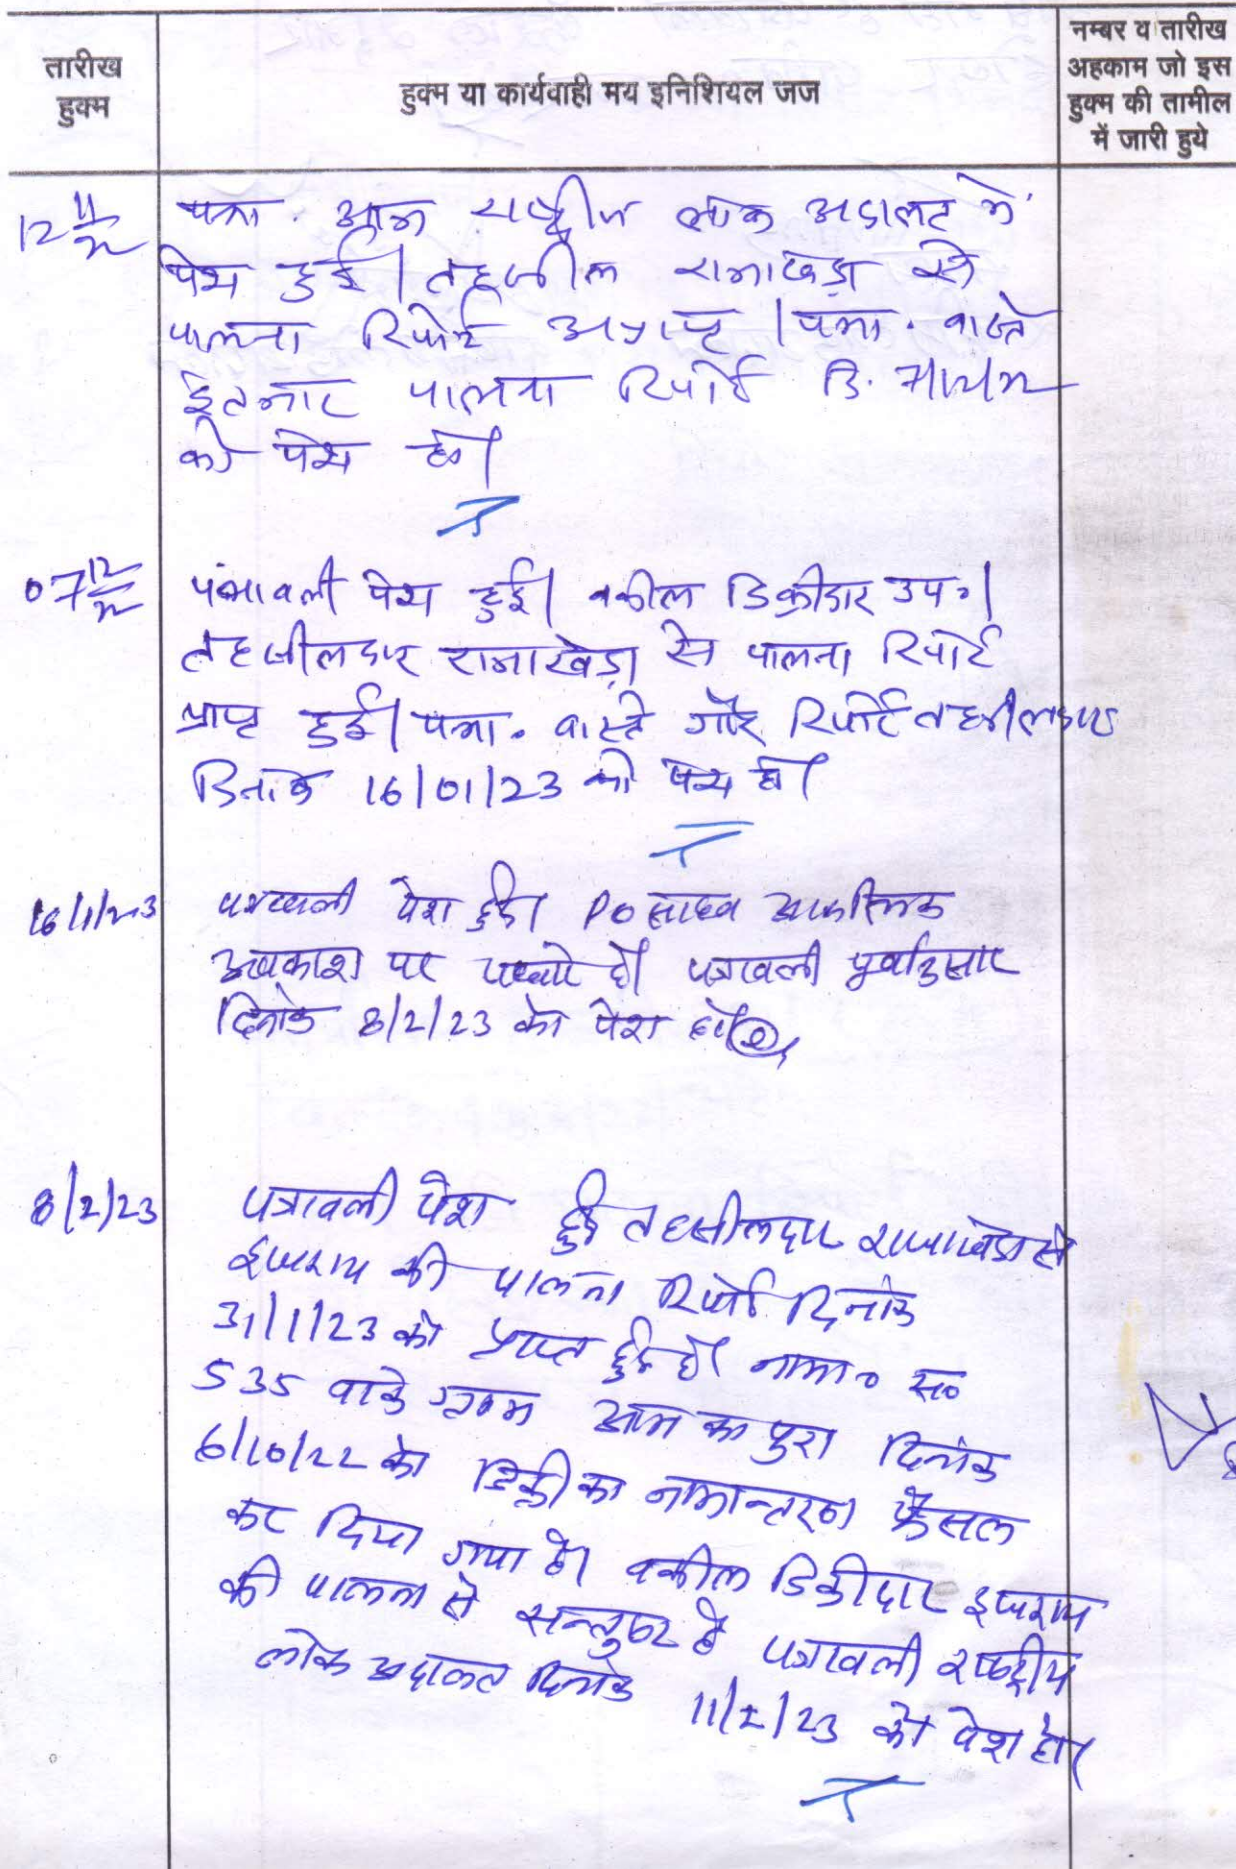 तारीख
हुक्म
हुक्म या कार्यवाही मय इनिशियल जज
नम्बर व तारीख
अहकाम जो इस
हुक्म की तामील
में जारी हुये
12 11/22
पत्रा. आज राष्ट्रीय लोक अदालत में
पेश हुई। तहसील राजाखेड़ा से
पालना रिपोर्ट अप्राप्त। पत्रा. वास्ते
इंतजार पालना रिपोर्ट दि. 7/12/22
को पेश हो।
07 12/22
पत्रावली पेश हुई। वकील डिक्रीदार उप०।
तहसीलदार राजाखेड़ा से पालना रिपोर्ट
प्राप्त हुई। पत्रा. वास्ते गौर रिपोर्ट तहसीलदार
दिनांक 16/01/23 को पेश हो।
16/1/23
पत्रावली पेश हुई। PO साहब आकस्मिक
अवकाश पर है। पत्रावली पूर्वानुसार
दिनांक 8/2/23 को पेश हो।
8/2/23
पत्रावली पेश हुई तहसीलदार राजाखेड़ा से
इजराय की पालना रिपोर्ट दिनांक
31/1/23 को प्राप्त हुई है। नामा० स०
535 वाके ग्राम आम का पुरा दिनांक
6/10/22 को डिक्री का नामान्तरण फैसल
कर दिया गया है। वकील डिक्रीदार इजराय
की पालना से सन्तुष्ट है पत्रावली राष्ट्रीय
लोक अदालत दिनांक 11/2/23 को पेश हो।